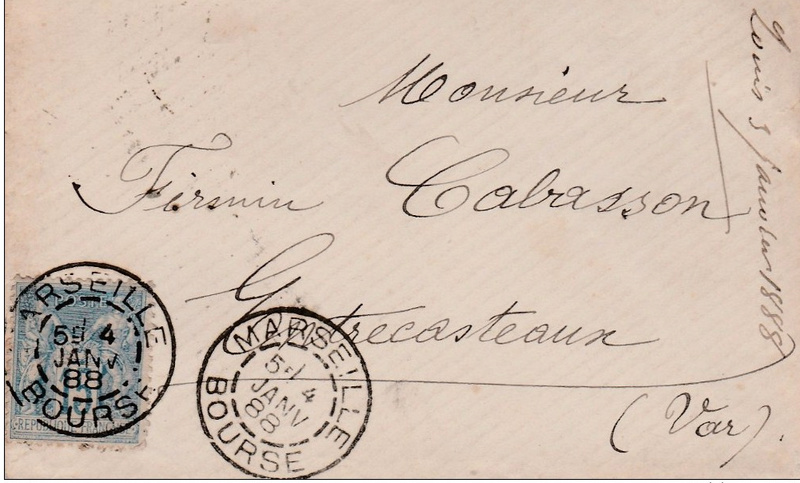 Monsieur
Firmin Cabasson
Entrecasteaux
(Var).
Louis 3 janvier 1888
MARSEILLE
5E 4
JANV
88
BOURSE
REPUBLIQUE FRANCAISE
MARSEILLE
5E 4
JANV
88
BOURSE